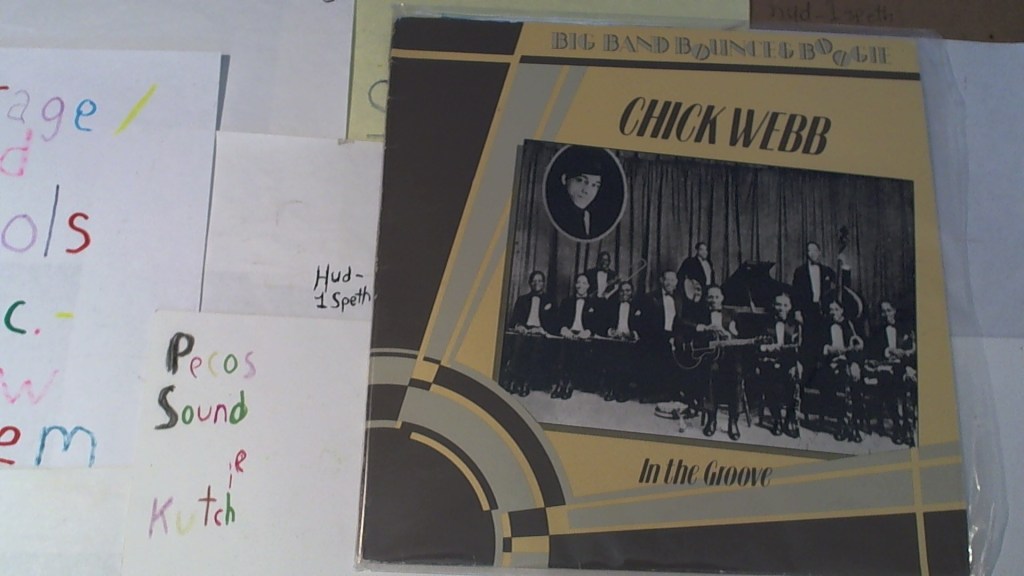 age /
d
ols
c. -
w
em
Hud-
1 Speth
Pecos
Sound
ie
Kutch
BIG BAND BOUNCE & BOOGIE
CHICK WEBB
In the Groove